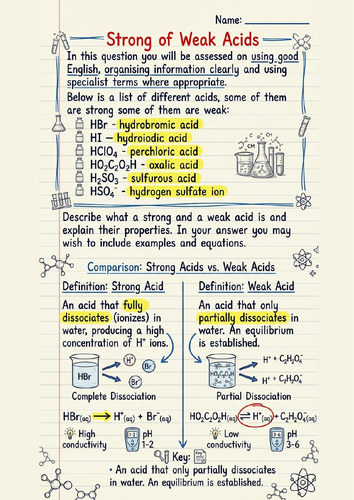 Name:
Strong of Weak Acids
In this question you will be assessed on using good
English, organising information clearly and using
specialist terms where appropriate.
Below is a list of different acids, some of them
are strong some of them are weak:
HBr - hydrobromic acid
HI – hydroiodic acid
HClO₄ - perchloric acid
HO₂C₂O₂H - oxalic acid
H₂SO₃ - sulfurous acid
HSO₄⁻ - hydrogen sulfate ion
Describe what a strong and a weak acid is and
explain their properties. In your answer you may
wish to include examples and equations.
Comparison: Strong Acids vs. Weak Acids
Definition: Strong Acid
An acid that fully
dissociates (ionizes) in
water, producing a high
concentration of H⁺ ions.
HBr
H⁺
Br⁻
Complete Dissociation
HBr(aq) → H⁺(aq) + Br⁻(aq)
High
conductivity
pH
1-2
Definition: Weak Acid
An acid that only
partially dissociates in
water. An equilibrium
is established.
HO₂C₂O₂H
H⁺ + C₂H₂O₄⁻
H⁺ + C₂H₂O₄⁻
Partial Dissociation
HO₂C₂O₂H(aq) ⇌ H⁺(aq) + C₂H₂O₄⁻(aq)
Low
conductivity
pH
3-6
Key:
• An acid that only partially dissociates
in water. An equilibrium is established.